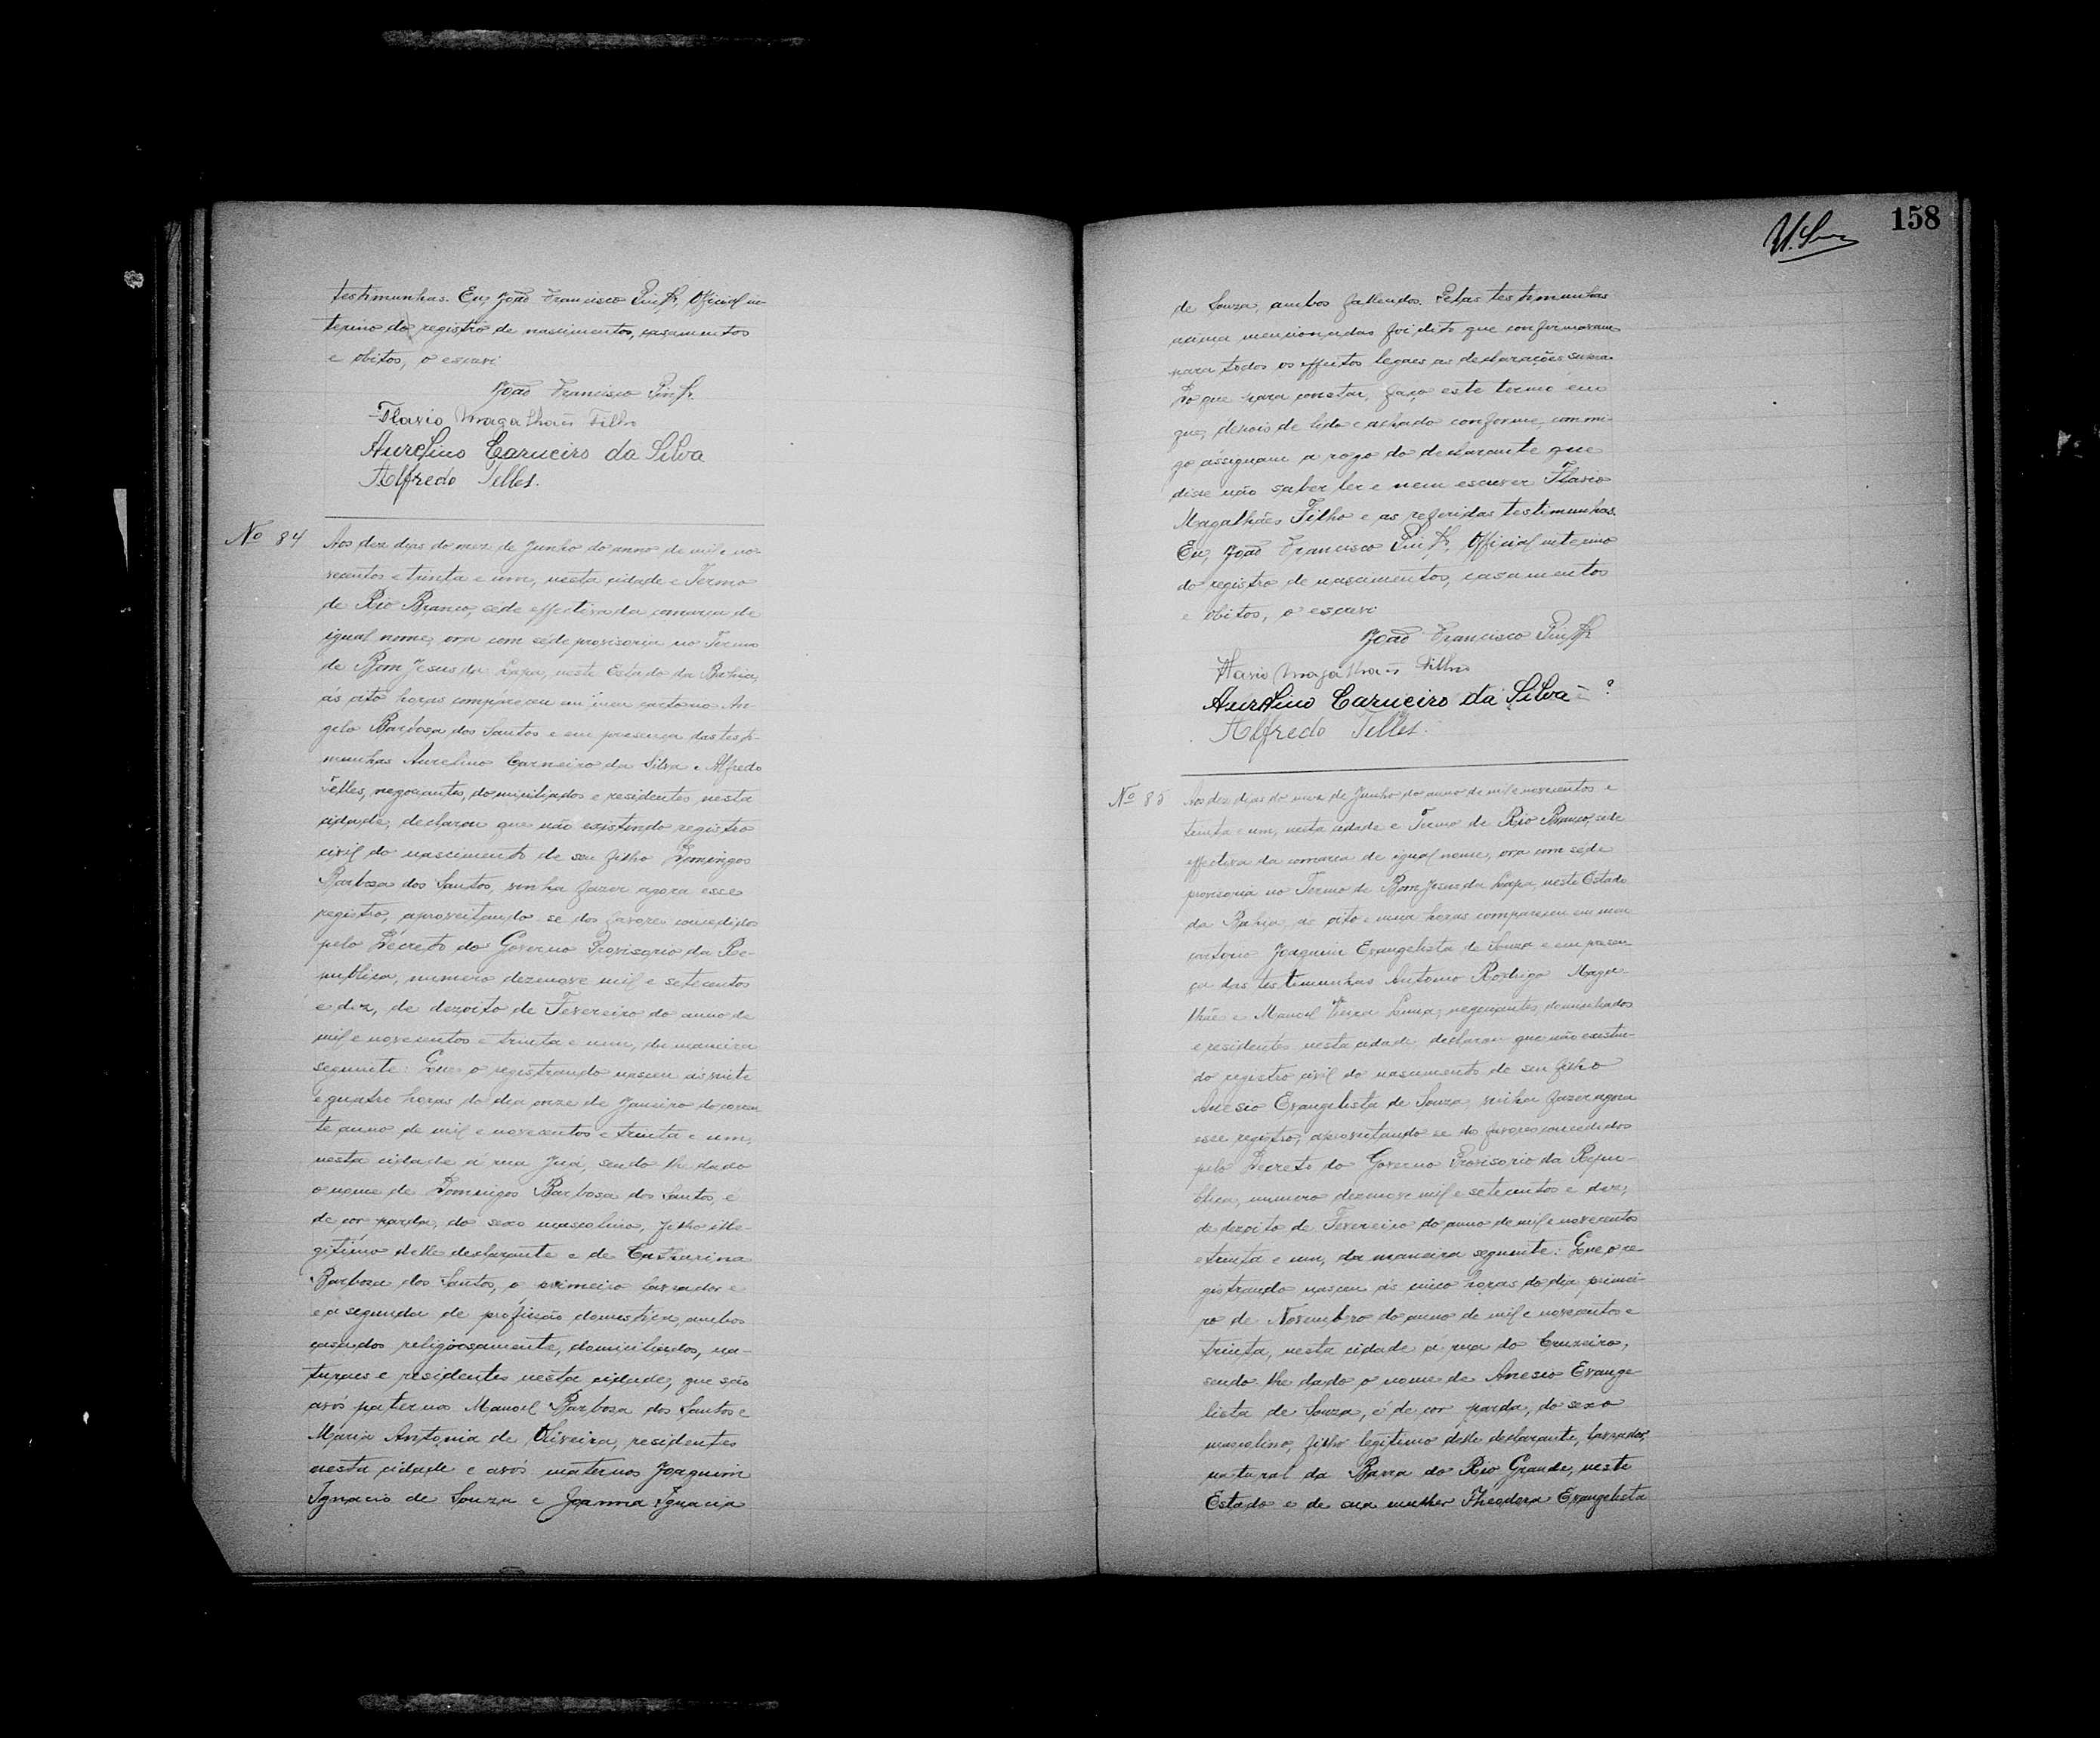 testimunhas. Eu, João Francisco Official in-
terino do registro de nascimentos, casamentos
e obitos, o escrevi
João Francisco
Flavio Magalhães Filho
Aurelino Carneiro da Silva
Alfredo Telles.
No 84 Aos dez dias do mez de Junho do anno de mil e no-
vecentos e trinta e um, nesta cidade e Termo
de Rio Branco, sede effectiva da comarca de
igual nome, ora com séde provisoria no Termo
de Bom Jesus da Lapa, neste Estado da Bahia,
ás oito horas compareceu em meu cartorio An-
gelo Barbosa dos Santos e em presença das testi-
munhas Aurelino Carneiro da Silva e Alfredo
Telles, negociantes, domiciliados e residentes nesta
cidade, declarou que não existindo registro
civil do nascimento de seu filho Domingos
Barbosa dos Santos, vinha fazer agora esse
registro, aproveitando-se dos favores concedidos
pelo Decreto do Governo Provisorio da Re-
publica, numero dezenove mil e setecentos
e dez, de dezoito de Fevereiro do anno de
mil e novecentos e trinta e um, da maneira
seguinte: Que o registrando nasceu ás vinte
e quatro horas do dia onze de Janeiro do corren
te anno de mil e novecentos e trinta e um,
nesta cidade á rua Juá, sendo-lhe dado
o nome de Domingos Barbosa dos Santos, é
de cor parda, do sexo masculino, filho ille-
gitimo delle declarante e de Catharina
Barbosa dos Santos, o primeiro lavrador e
e a segunda de profissão domestica, ambos
casados religiosamente, domiciliados, na-
turaes e residentes nesta cidade, que são
avós paternos Manoel Barbosa dos Santos e
Maria Antonia de Oliveira, residentes
nesta cidade e avós maternos Joaquim
Ignacio de Souza e Joanna Ignacia
158
de Souza, ambos fallecidos. Pelas testimunhas
acima mencionadas foi dito que confirmavam
para todos os effeitos legaes as declarações supra.
Do que para constar, faço este termo em
que, depois de lido e achado conforme, commi-
go assignam a rogo do declarante que
disse não saber ler e nem escrever Flavio
Magalhães Filho e as referidas testimunhas.
Eu, João Francisco Official interino
do registro de nascimentos, casamentos
e obitos, o escrevi
João Francisco
Flavio Magalhães Filho
Aurelino Carneiro da Silva
Alfredo Telles.
No 85 Aos dez dias do mez de Junho do anno de mil e novecentos e
trinta e um, nesta cidade e Termo de Rio Branco, séde
effectiva da comarca de igual nome, ora com séde
provisoria no Termo de Bom Jesus da Lapa, neste Estado
da Bahia, ás oito e meia horas compareceu em meu
cartorio Joaquim Evangelista de Souza e em presen
ça das testimunhas Antonio Rodrigo Maga-
lhães e Manoel Vieira Lima, negociantes, domiciliados
e residentes nesta cidade, declarou que não existin-
do registro civil do nascimento de seu filho
Anesio Evangelista de Souza, vinha fazer agora
esse registro, aproveitando-se dos favores concedidos
pelo Decreto do Governo Provisorio da Repu-
blica, numero dezenove mil e setecentos e dez,
de dezoito de Fevereiro do anno de mil e novecentos
e trinta e um, da maneira seguinte: Que o re-
gistrando nasceu ás cinco horas do dia primei-
ro de Novembro do anno de mil e novecentos e
trinta, nesta cidade á rua do Cruzeiro,
sendo-lhe dado o nome de Anesio Evange-
lista de Souza, é de cor parda, do sexo
masculino, filho legitimo delle declarante, lavrador,
natural da Barra do Rio Grande, neste
Estado e de sua mulher Theodora Evangelista